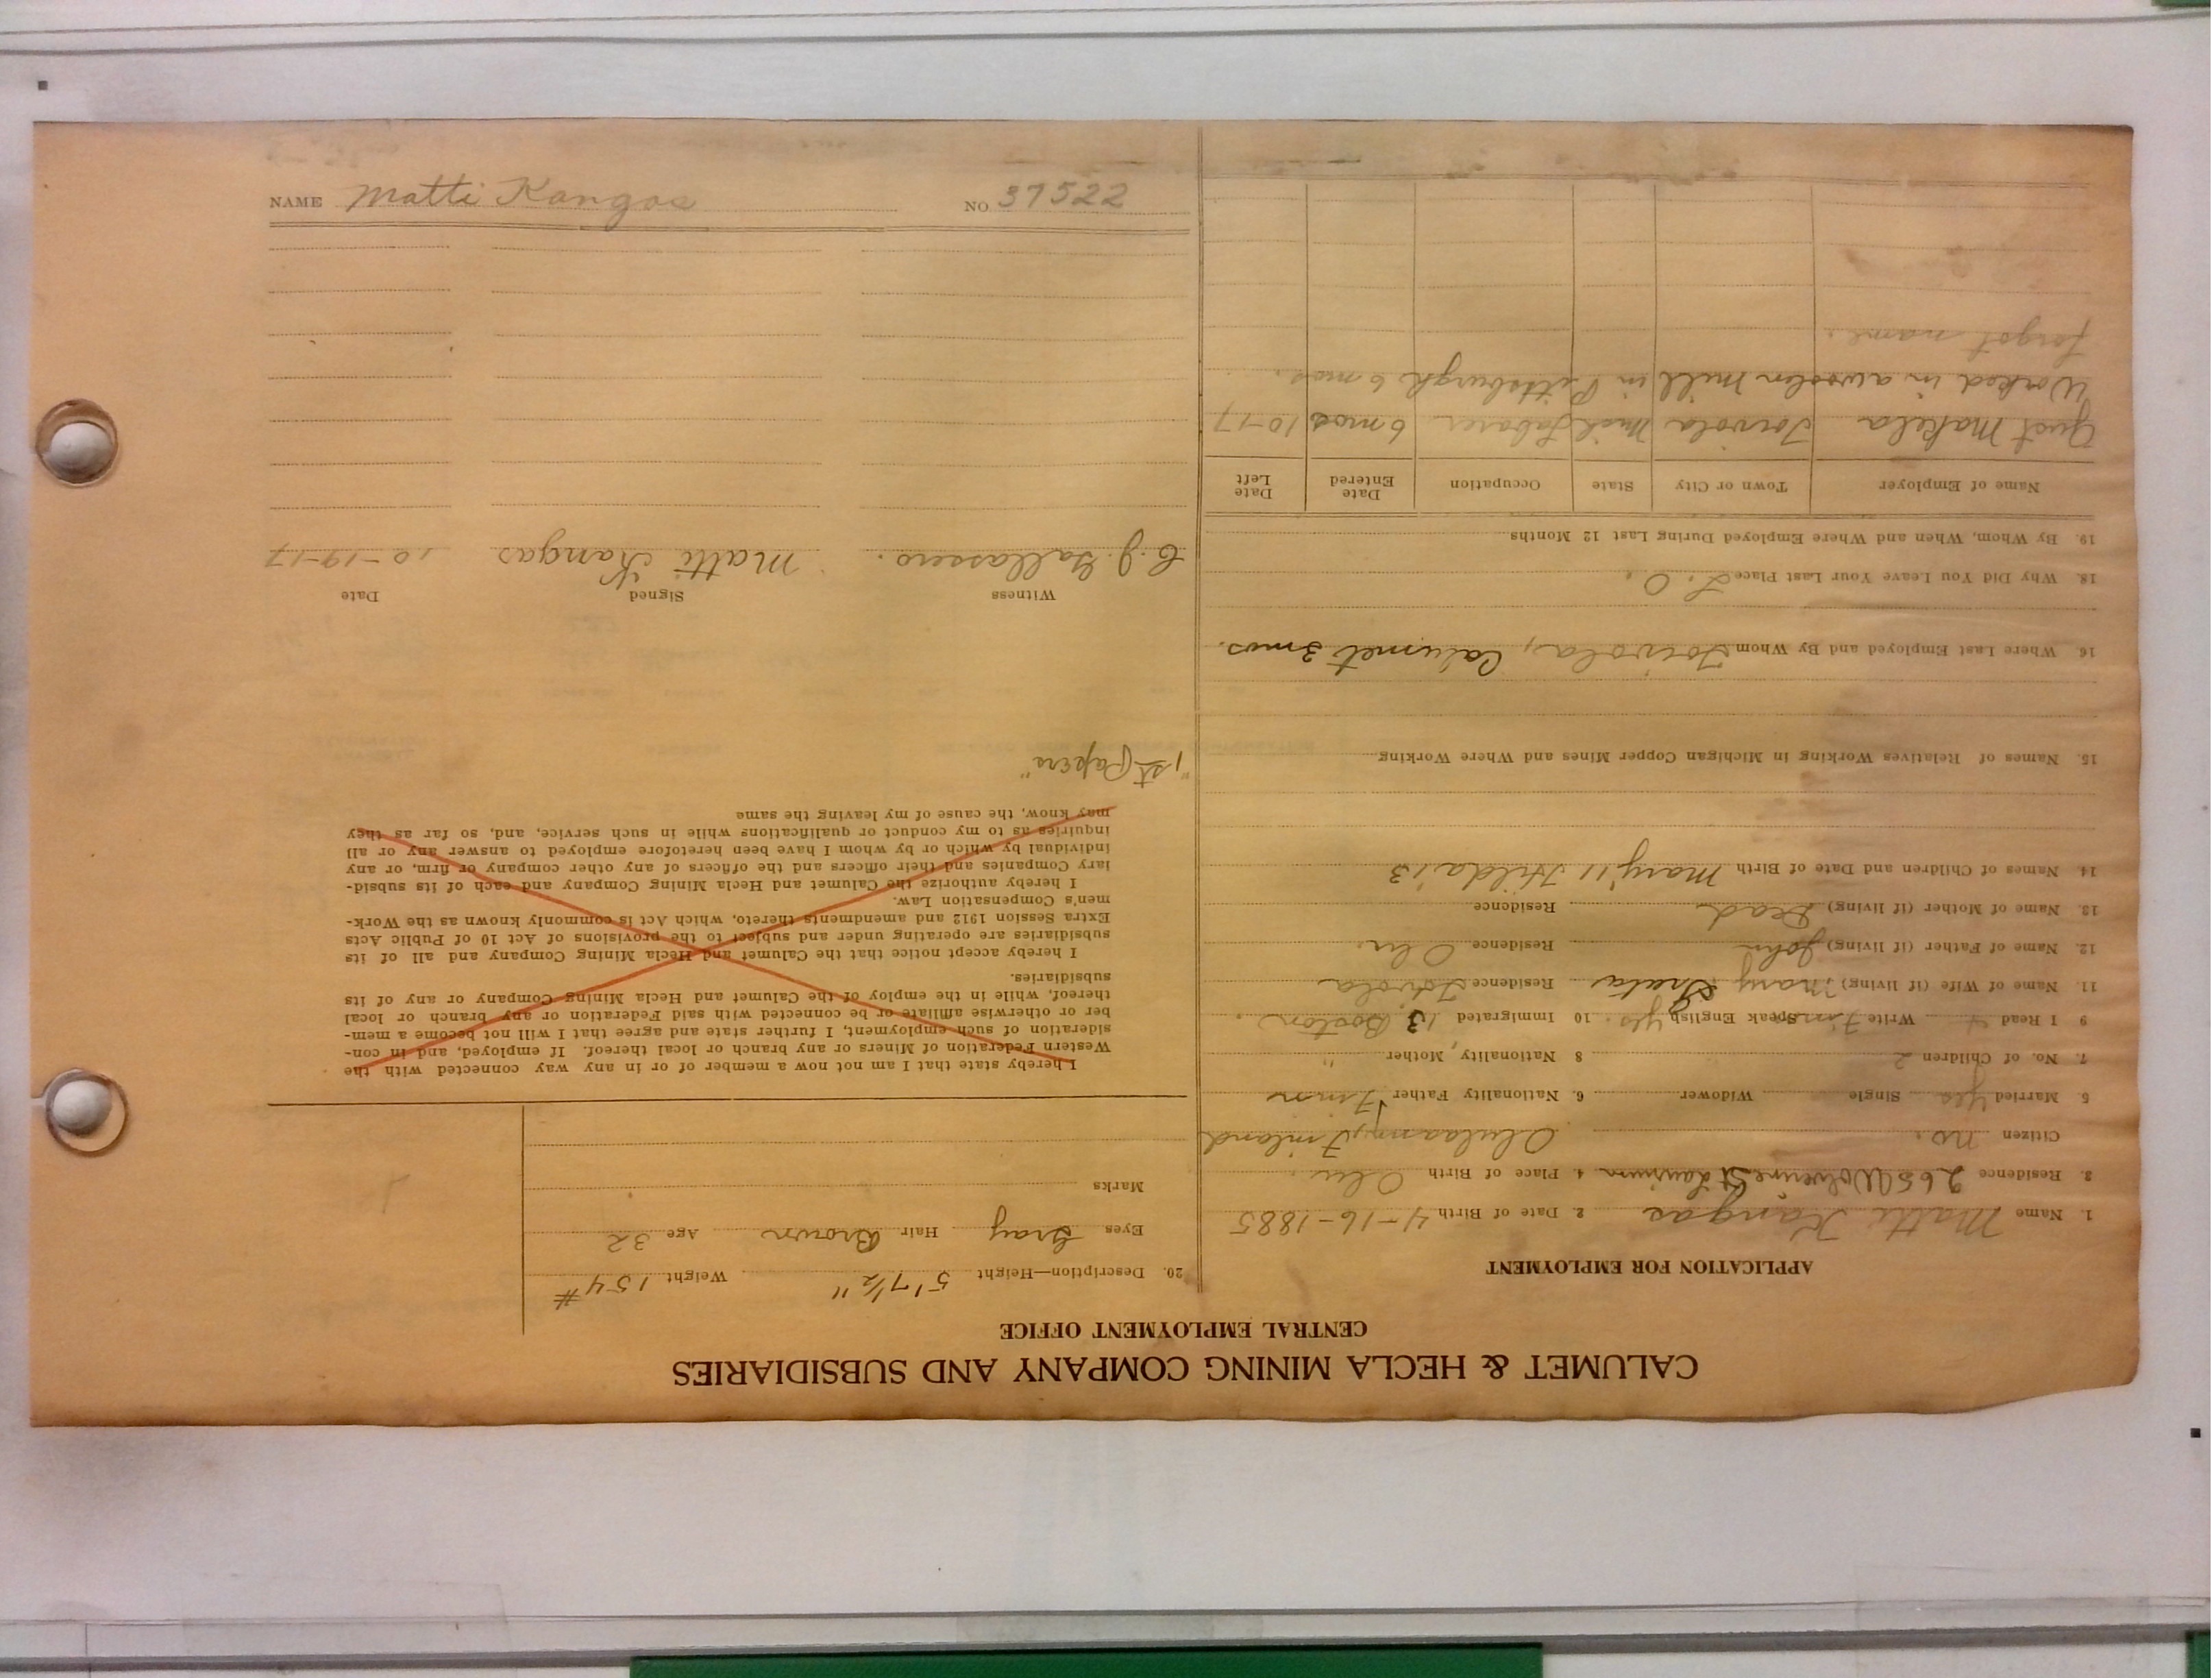 CALUMET & HECLA MINING COMPANY AND SUBSIDIARIES
CENTRAL EMPLOYMENT OFFICE
APPLICATION FOR EMPLOYMENT
1. Name Matti Kangas 2. Date of Birth 4-16-1885
3. Residence 265 Wolverine St Laurium 4. Place of Birth Olu.
Citizen no. Olulaany, Finland
5. Married Yes Single Widower 6. Nationality Father Finn
7. No. of Children 2 8 Nationality, Mother "
9 I Read Y Write Finn Speak English Yes. 10 Immigrated 13 Boston.
11. Name of Wife (if living) Mary Residence Toivola
12. Name of Father (if living) John Residence Olu.
13. Name of Mother (if living) Dead Residence
14. Names of Children and Date of Birth Mary '11 Hilda '13
15. Names of Relatives Working in Michigan Copper Mines and Where Working
16. Where Last Employed and By Whom Toivola, Calumet 3 mos.
18. Why Did You Leave Your Last Place L.O.
19. By Whom, When and Where Employed During Last 12 Months
Name of Employer Town or City State Occupation Date Entered Date Left
Gust Makela Toivola Mich Laborer 6 mos 10-17
Worked in a woolen Mill in Pittsburgh 6 mos.
forgot name.
20. Description—Height 5'7½" Weight 154#
Eyes Gray Hair Brown Age 32
Marks
I hereby state that I am not now a member of or in any way connected with the
Western Federation of Miners or any branch or local thereof. If employed, and in con-
sideration of such employment, I further state and agree that I will not become a mem-
ber or otherwise affiliate or be connected with said Federation or any branch or local
thereof, while in the employ of the Calumet and Hecla Mining Company or any of its
subsidiaries.
I hereby accept notice that the Calumet and Hecla Mining Company and all of its
subsidiaries are operating under and subject to the provisions of Act 10 of Public Acts
Extra Session 1912 and amendments thereto, which Act is commonly known as the Work-
men's Compensation Law.
I hereby authorize the Calumet and Hecla Mining Company and each of its subsid-
iary Companies and their officers and the officers of any other company or firm, or any
individual by which or by whom I have been heretofore employed to answer any or all
inquiries as to my conduct or qualifications while in such service, and, so far as they
may know, the cause of my leaving the same
"1st Papers"
Witness Signed Date
Matti Kangas 10-19-17
NAME Matti Kangas NO 37522